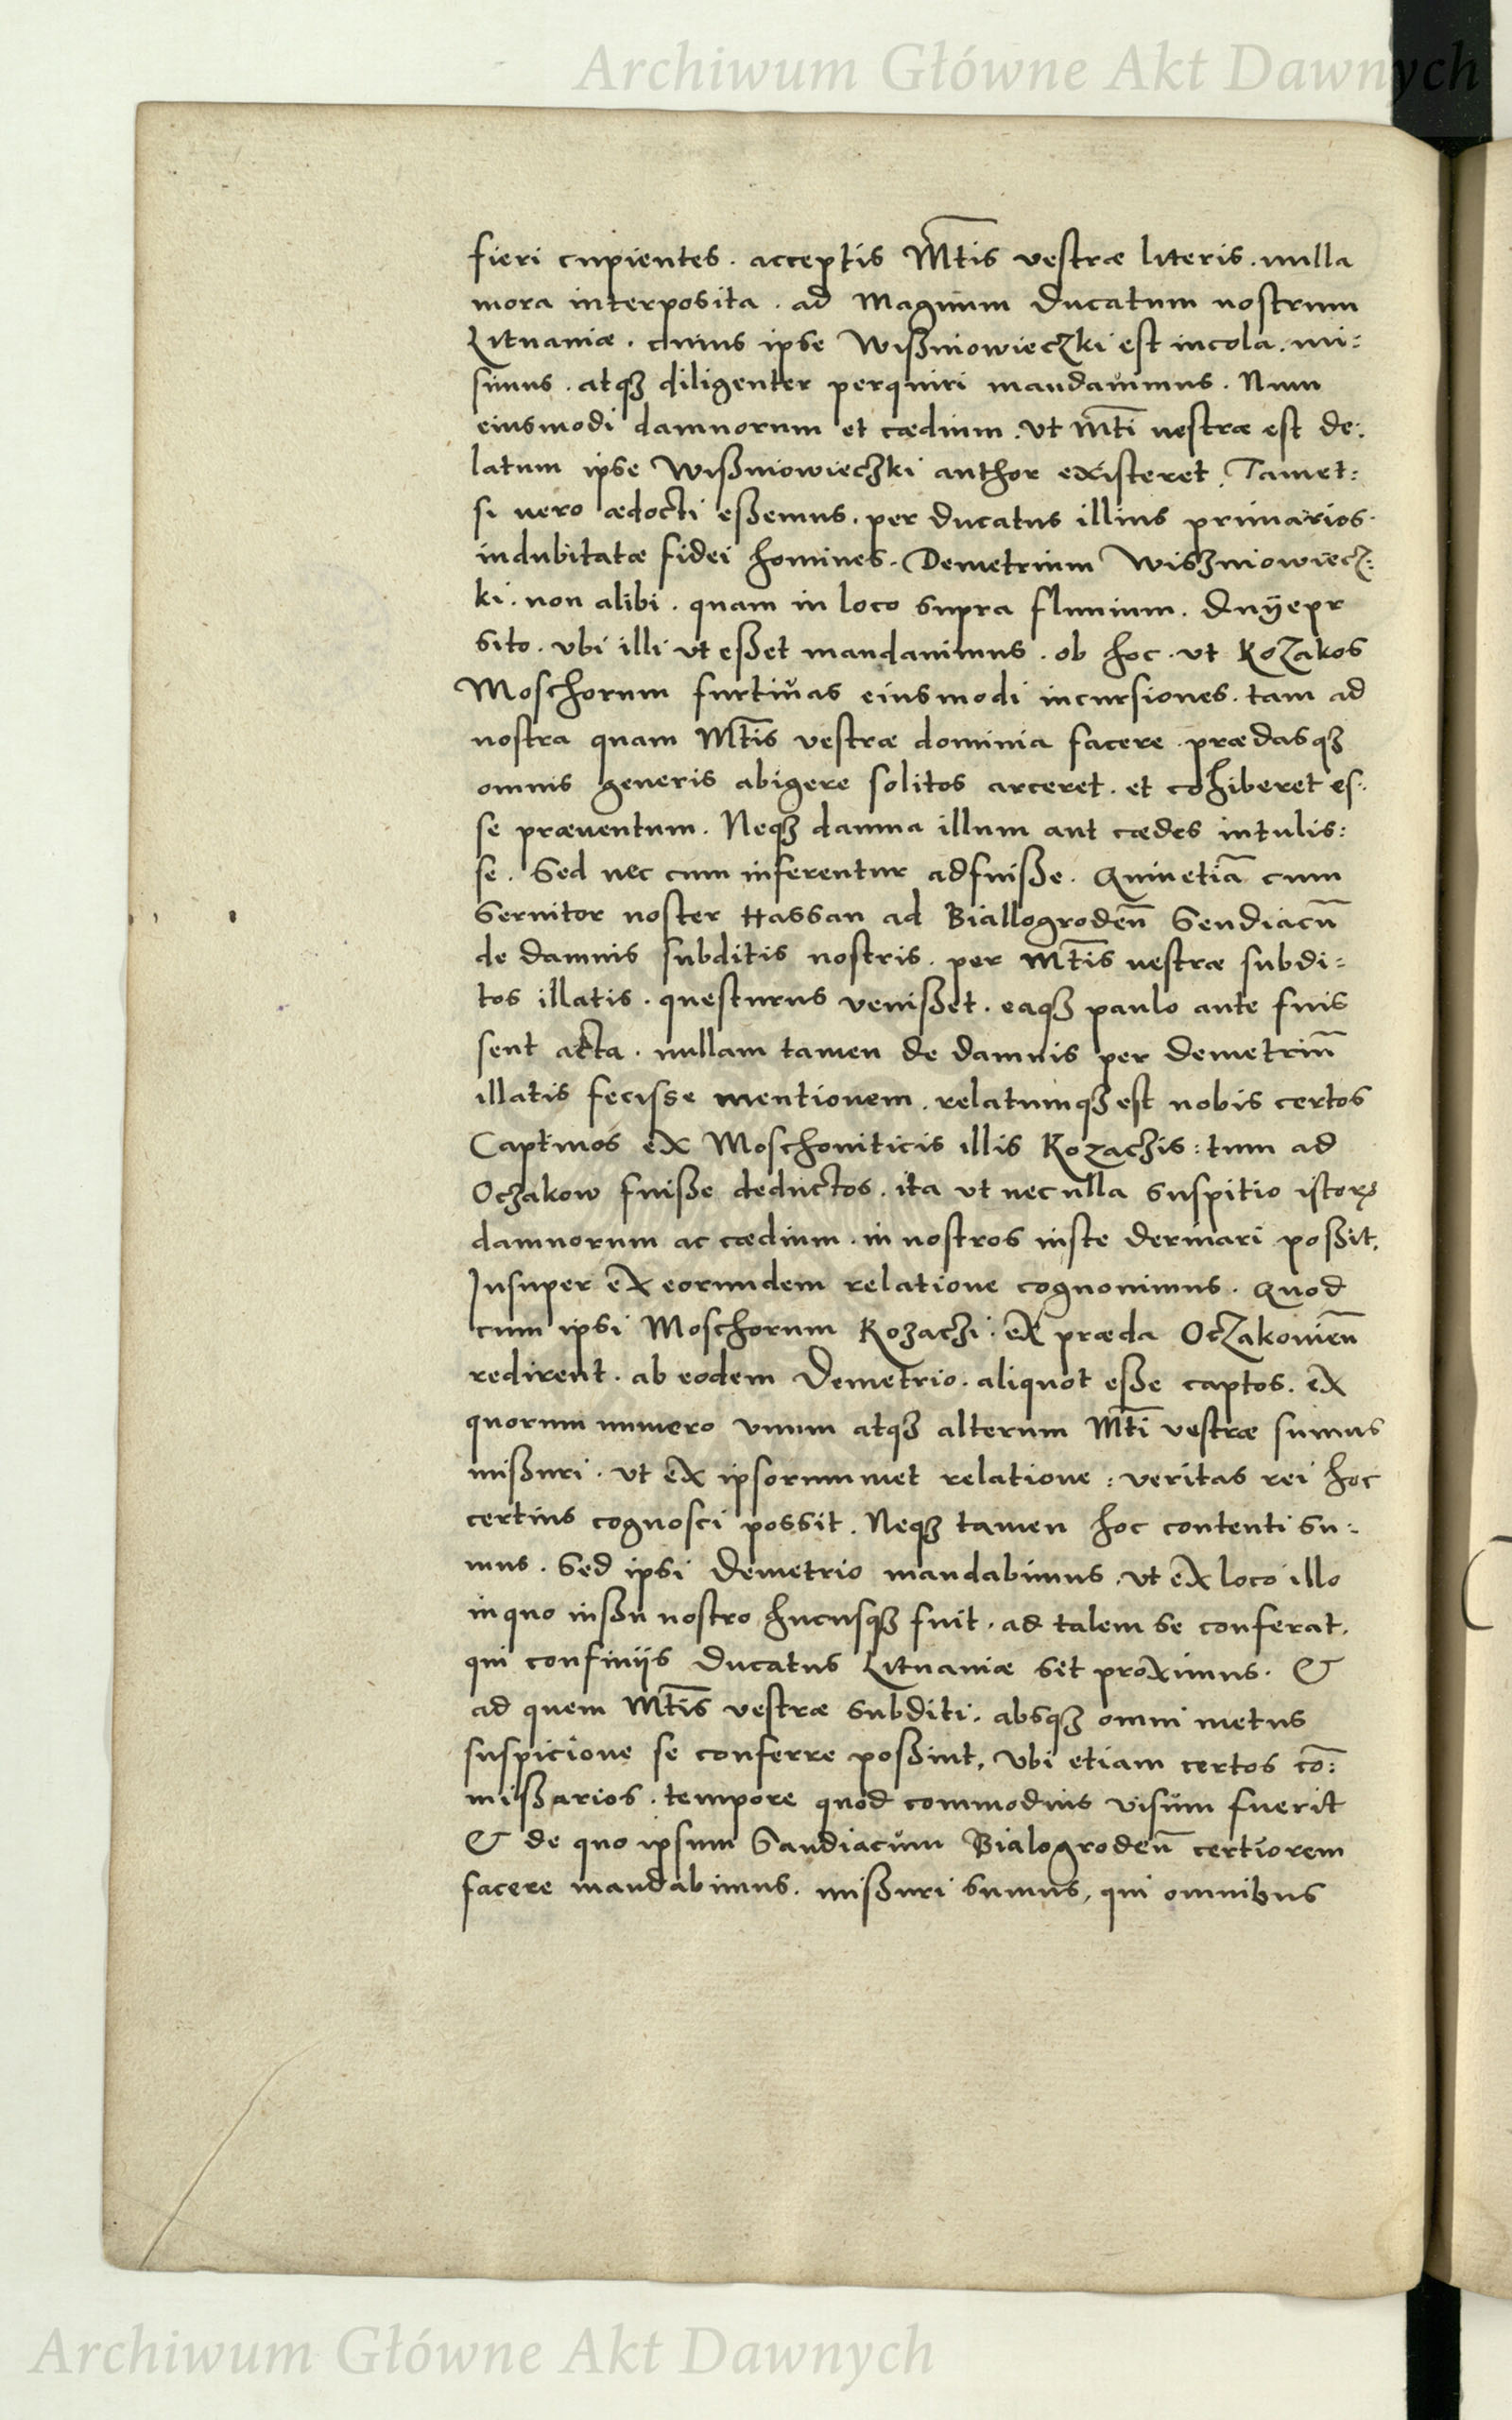 Archiwum Główne Akt Dawnych
fieri cupientes. acceptis Mtis vestræ literis. nulla
mora interposita. ad Magnum Ducatum nostrum
Lituaniæ. cuius ipse Wißniowieczki est incola. mi:
simus. atqȝ diligenter perquiri mandauimus. Num
eiusmodi damnorum et cædium. ut Mti uestræ est de:
latum ipse Wißniowieczki author existeret. Tamet:
si uero ædocti eßemus. per Ducatus illius primarios.
indubitatæ fidei homines. Demetrium Wiszniowiecz:
ki. non alibi. quam in loco supra fluuium. Dnÿepr
sito. vbi illi ut eßet mandauimus. ob hoc. ut Kozakos
Moschorum furtiuas eiusmodi incursiones. tam ad
nostra quam Mtis vestræ dominia facere. prædasqȝ
omnis generis abigere solitos arceret. et cohiberet es:
se præuentum. Neqȝ damna illum aut cædes intulis:
se. Sed nec cum inferentur adfuiße. Quinetiā cum
Seruitor noster Hassan ad Biallogrodeñ Sendiacū
de damnis subditis nostris. per Mtis uestræ subdi=
tos illatis. questurus venißet. eaqȝ paulo ante fuis
sent acta. nullam tamen de damnis per Demetriū
illatis fecisse mentionem. relatumqȝ est nobis certos
Captiuos ex Moschouiticis illis Kozachis: tum ad
Oczakow fuiße deductos. ita ut nec ulla suspitio istorꝝ
damnorum ac cædium. in nostros iuste deriuari poßit.
Insuper ex eorundem relatione cognouimus. Quod
cum ipsi Moschorum Kozachi. ex præda Oczakouieñ
redirent. ab eodem Demetrio. aliquot eße captos. ex
quorum numero vnum atqȝ alterum Mti vestræ sumus
mißuri. ut ex ipsorummet relatione: veritas rei hoc
certius cognosci possit. Neqȝ tamen hoc contenti su:
mus. Sed ipsi Demetrio mandabimus. ut ex loco illo
in quo iußu nostro hucusqȝ fuit. ad talem se conferat.
qui confinijs Ducatus Lituaniæ sit proximus. &
ad quem Mtis vestræ subditi. absqȝ omni metus
suspicione se conferre poßint. Vbi etiam certos cō:
mißarios. tempore quod commodius visum fuerit
& de quo ipsum Sandiacum Bialogrodeñ certiorem
facere mandabimus. mißuri sumus, qui omnibus
Archiwum Główne Akt Dawnych